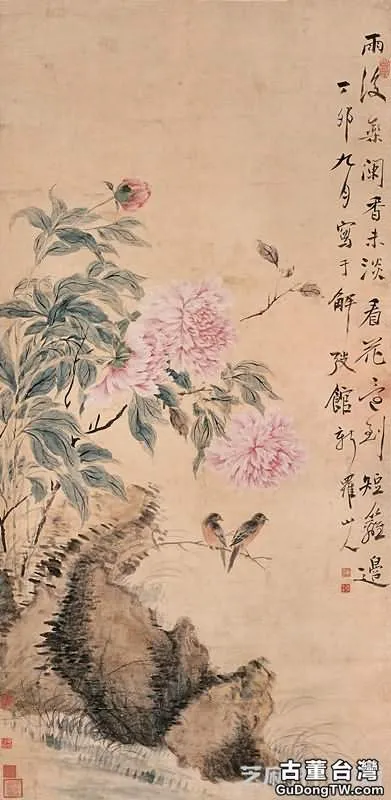 雨後藥闌香未淡看花到短籬邊
丁卯九月寫于解弢館新羅山人
古董台灣
GuDongTW.com